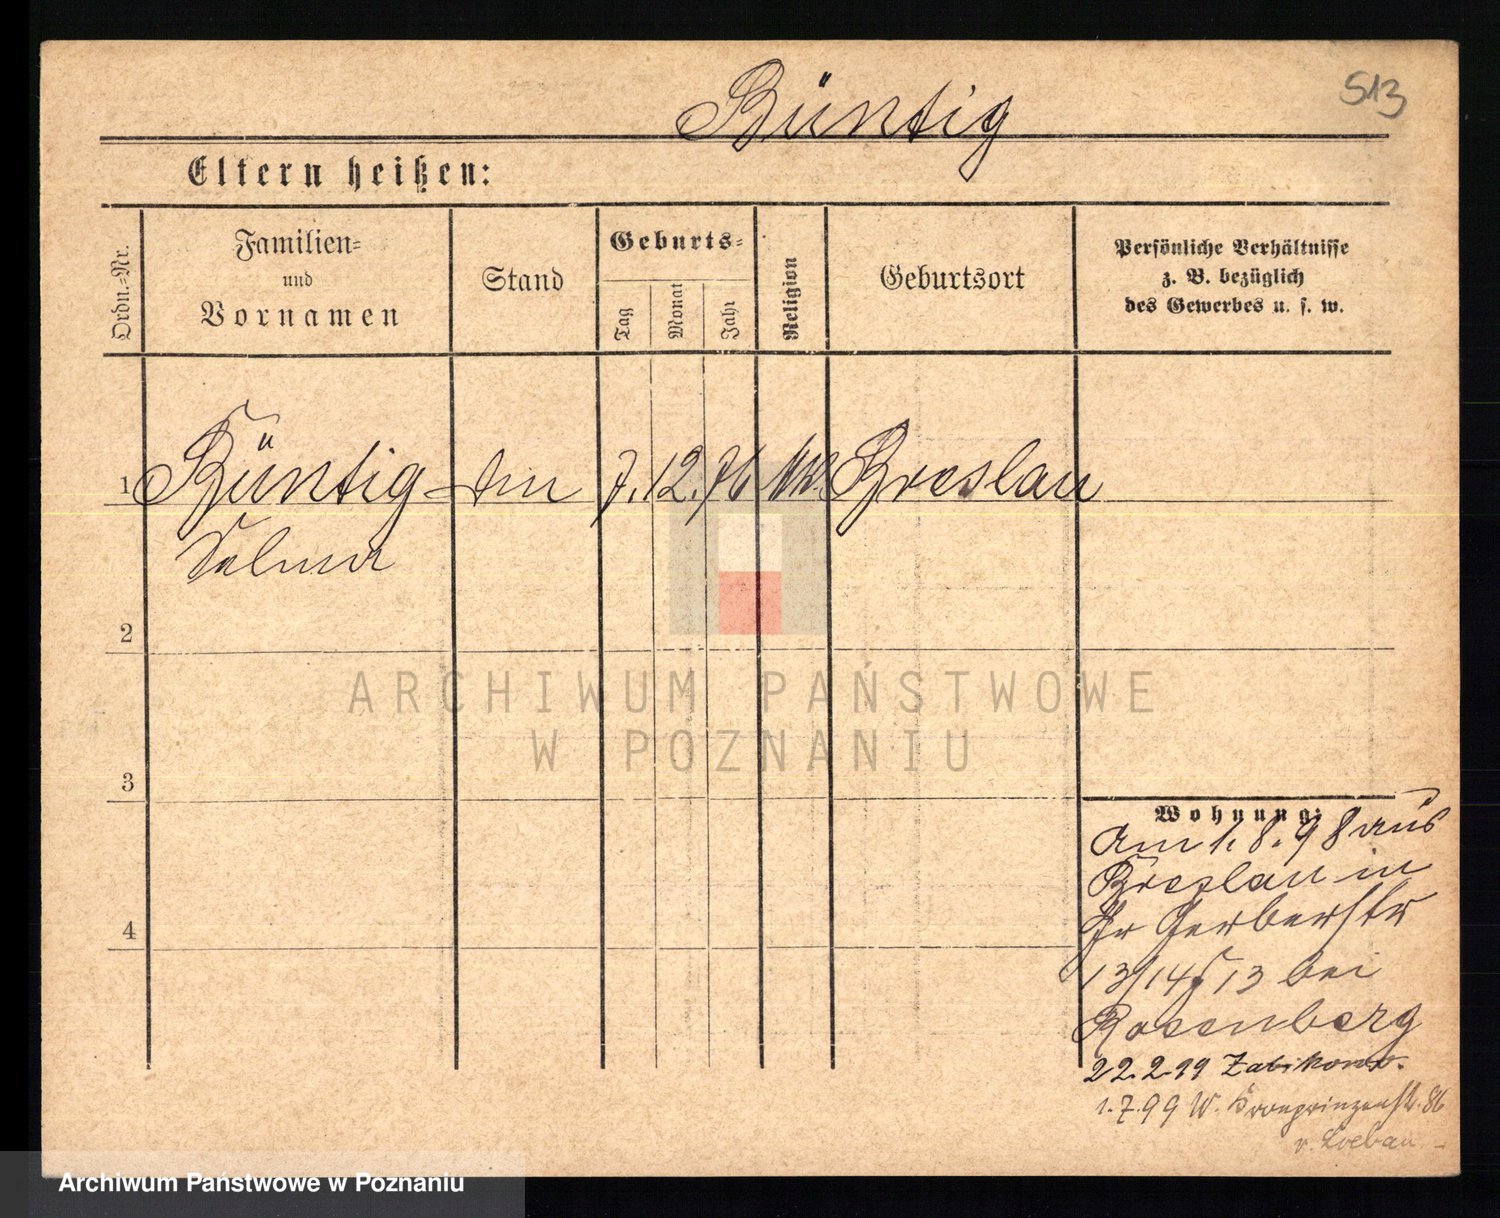 513
Büntig
Eltern heißen:
Ordn.-Nr.
Familien-
und
Vornamen
Stand
Geburts-
Tag
Monat
Jahr
Religion
Geburtsort
Persönliche Verhältnisse
z. B. bezüglich
des Gewerbes u. s. w.
1 Büntig 7. 12. 76 Breslau
Selma
2
3
4
ARCHIWUM PAŃSTWOWE
W POZNANIU
Wohnung:
am 1. 8. 98 aus
Breslau in
Gr Gerberstr
13/14 13 bei
Rosenberg
22.2.99 Zabikowo.
1.7.99 W. Kronprinzenstr. 86
v. Loebau
Archiwum Państwowe w Poznaniu